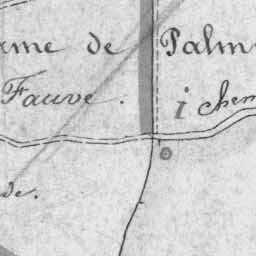 rme de Palm
Fauve. i chem
de.